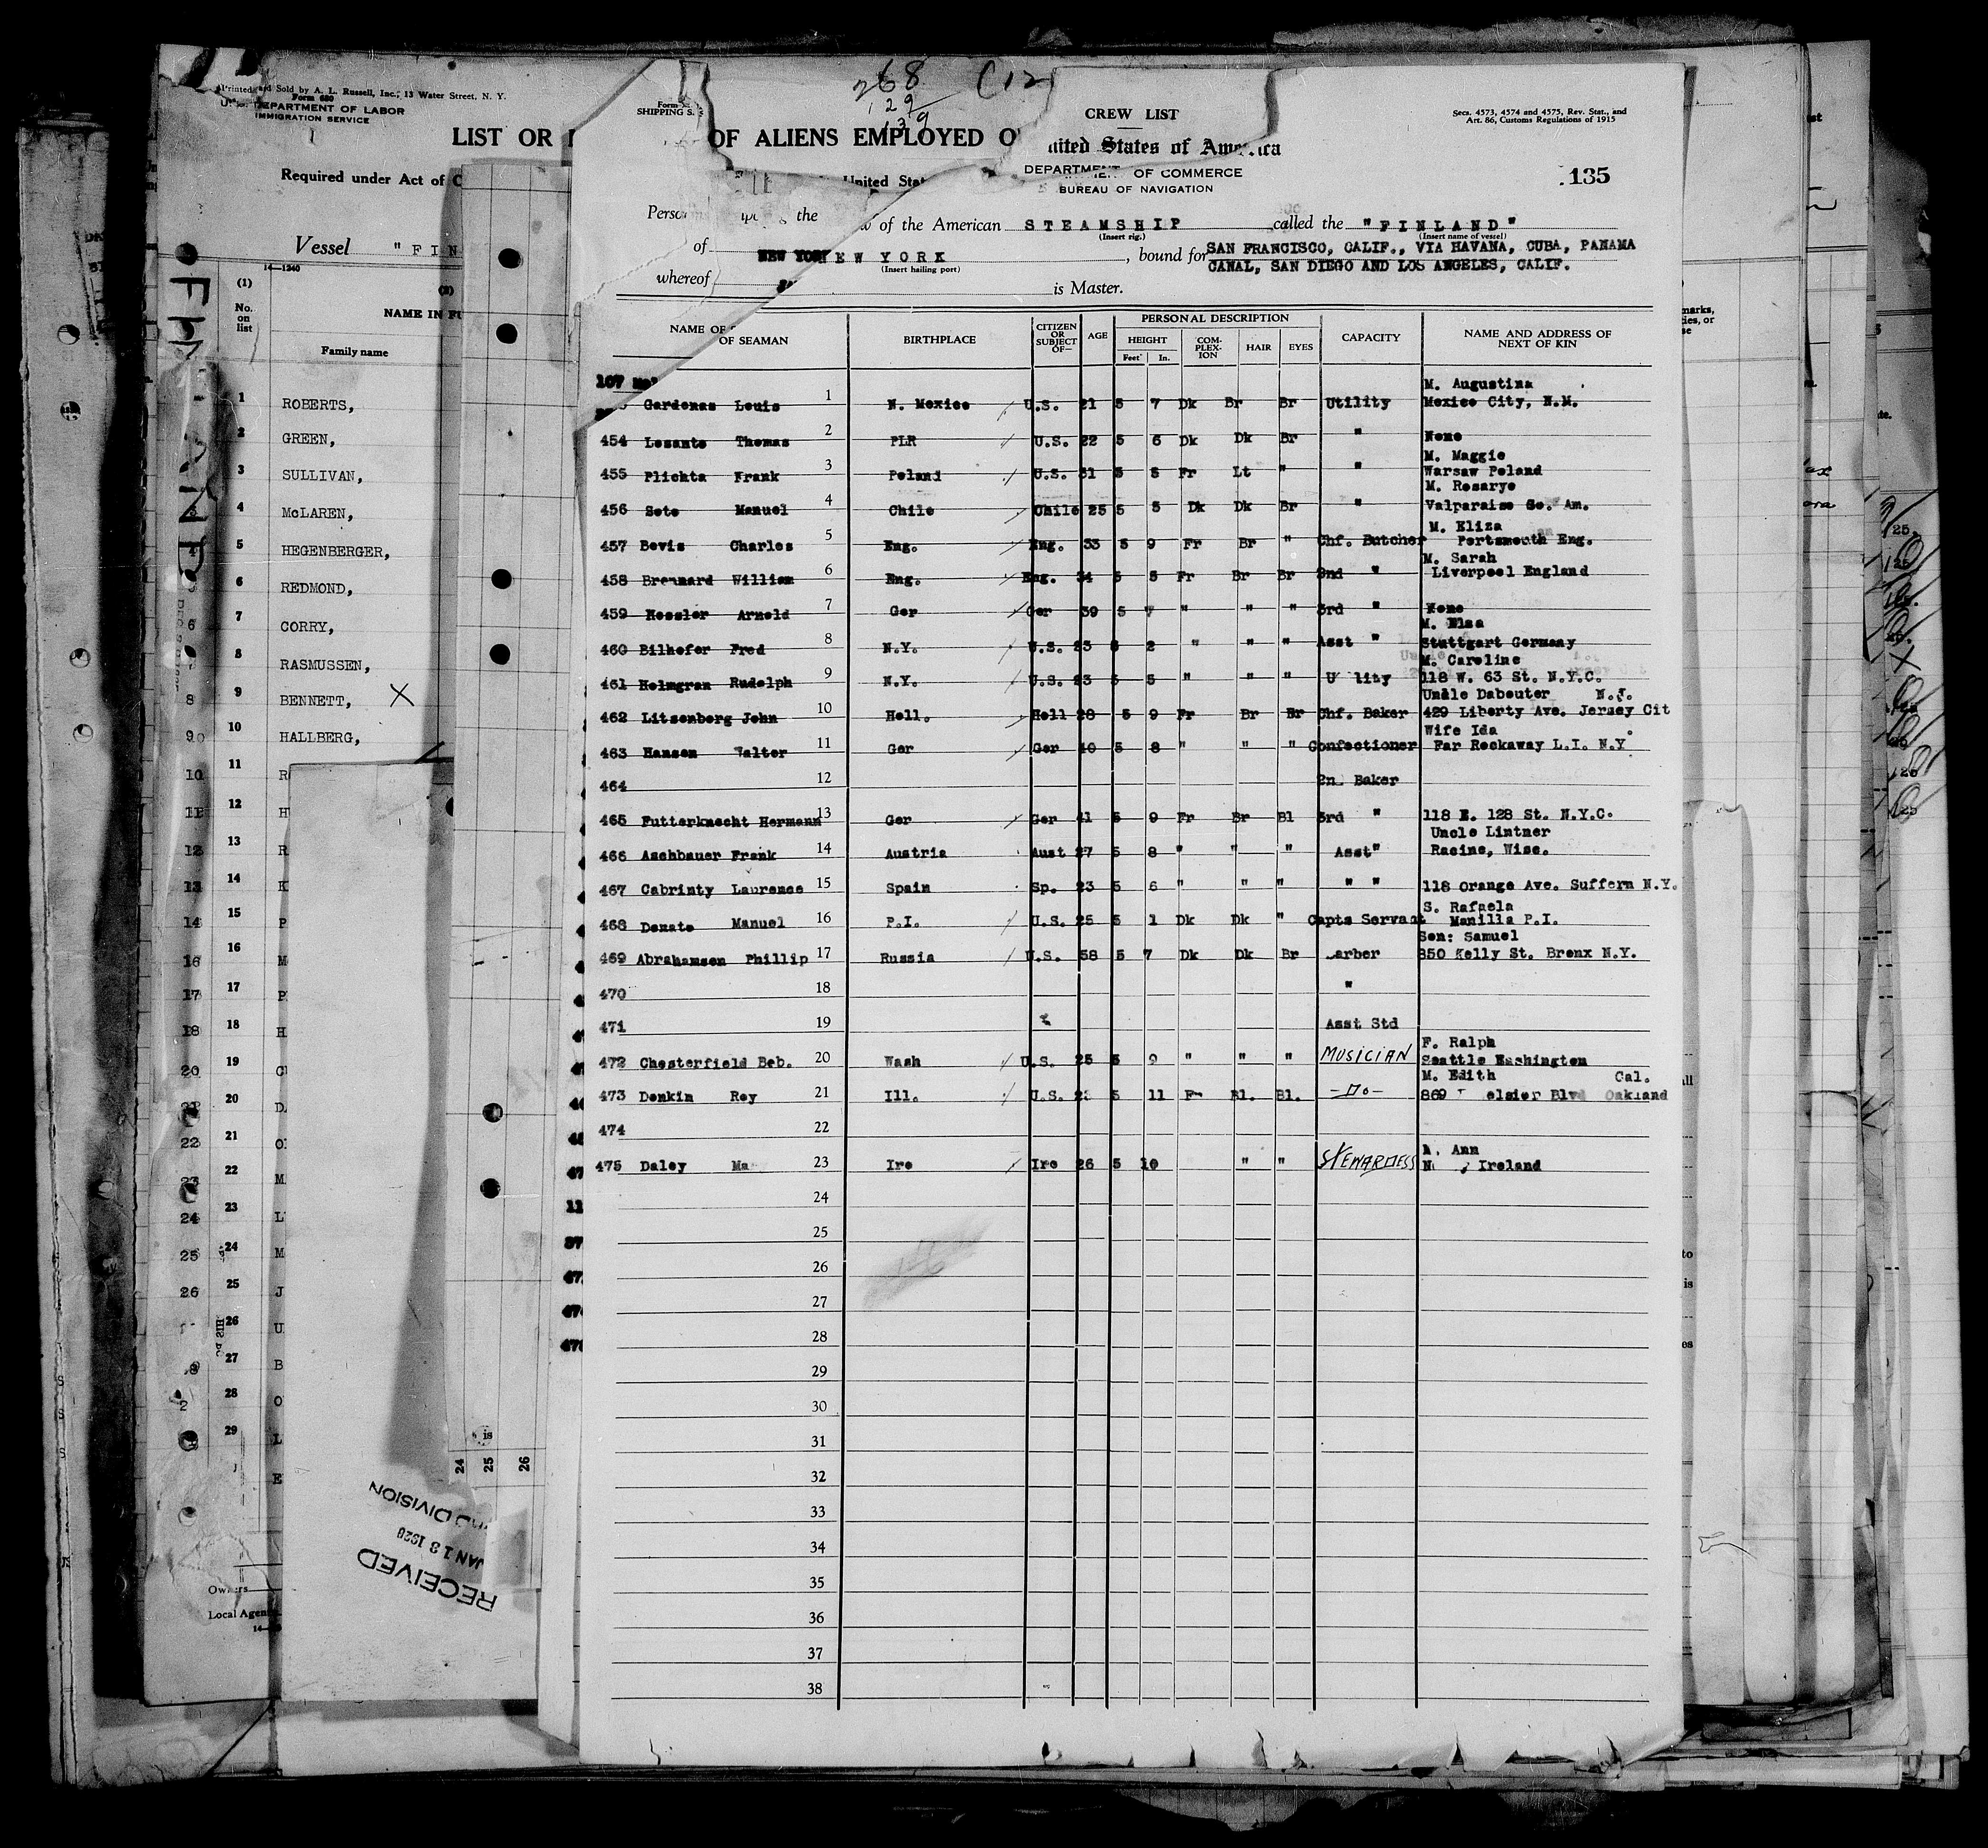 Printed and Sold by A. L. Russell, Inc., 13 Water Street, N. Y.
Form 680
DEPARTMENT OF LABOR
IMMIGRATION SERVICE
LIST OR OF ALIENS EMPLOYED
Required under Act of
United
Vessel "FIN
14-1240
(1)
No. on list
NAME IN
Family name
1 ROBERTS,
2 GREEN,
3 SULLIVAN,
4 McLAREN,
5 HEGENBERGER,
6 REDMOND,
7 CORRY,
8 RASMUSSEN,
9 BENNETT, X
10 HALLBERG,
11
12
13
14
15
16
17
18
19
20
21
22
23
24
25
26
27
28
29
Local Agen
RECEIVED
JAN 18 1926
DIVISION
24
25
26
268 (12)
129
139
Form
SHIPPING
CREW LIST
Secs. 4573, 4574 and 4575, Rev. Stat., and
Art. 86, Customs Regulations of 1915
United States of America
DEPARTMENT OF COMMERCE
BUREAU OF NAVIGATION
135
the of the American STEAMSHIP called the "FINLAND"
(Insert rig.) (Insert name of vessel)
of NEW YORK, bound for SAN FRANCISCO, CALIF., VIA HAVANA, CUBA, PANAMA
(Insert hailing port) CANAL, SAN DIEGO AND LOS ANGELES, CALIF.
whereof is Master.
NAME OF SEAMAN
BIRTHPLACE
CITIZEN OR SUBJECT OF—
AGE
PERSONAL DESCRIPTION
HEIGHT
Feet In.
COMPLEXION
HAIR
EYES
CAPACITY
NAME AND ADDRESS OF NEXT OF KIN
107
M. Augustina
Cardenas Louis 1 N. Mexico U.S. 21 5 7 Dk Br Br Utility Mexico City, N.M.
454 Lesante Thomas 2 PLR U.S. 22 5 6 Dk Dk Br " None
M. Maggie
455 Plichta Frank 3 Poland U.S. 31 5 8 Fr Lt " " Warsaw Poland
M. Rosarye
456 Soto Manuel 4 Chile Chile 25 5 5 Dk Dk Br " Valparaiso So. Am.
M. Eliza
457 Bevis Charles 5 Eng. Eng. 33 5 9 Fr Br " Chf. Butcher Portsmouth Eng.
M. Sarah
458 Brennard William 6 Eng. Eng. 34 5 5 Fr Br Br 2nd " Liverpool England
459 Hessler Arnold 7 Ger Ger 39 5 7 " " " 3rd " None
M. Elsa
460 Bilhofer Fred 8 N.Y. U.S. 23 2 " " " Asst " Stuttgart Germany
M. Caroline
461 Holmgran Rudolph 9 N.Y. U.S. 23 5 5 " " " U lity 118 W. 63 St. N.Y.C.
Uncle Dabouter N.J.
462 Litzenberg John 10 Holl. Holl 28 5 9 Fr Br Br Chf. Baker 429 Liberty Ave. Jersey Cit
Wife Ida
463 Hansen Walter 11 Ger Ger 40 5 8 " " " Confectioner Far Rockaway L.I. N.Y.
464 12 2n Baker
465 Futterknecht Hermann 13 Ger Ger 41 5 9 Fr Br Bl 3rd " 118 E. 128 St. N.Y.C.
Uncle Lintner
466 Aschbauer Frank 14 Austria Aust 27 5 8 " " " Asst" Racine, Wisc.
467 Cabrinty Laurence 15 Spain Sp. 23 5 6 " " " " " 118 Orange Ave. Suffern N.Y.
S. Rafaela
468 Donato Manuel 16 P.I. U.S. 25 5 1 Dk Dk " Capts Servant Manilla P.I.
Son: Samuel
469 Abrahamsen Phillip 17 Russia U.S. 58 5 7 Dk Dk Br arber 850 Kelly St. Bronx N.Y.
470 18 "
471 19 Asst Std
F. Ralph
472 Chesterfield Bob. 20 Wash U.S. 25 5 9 " " " MUSICIAN Seattle Washington
M. Edith Cal.
473 Donkin Roy 21 Ill. U.S. 5 11 Bl. Bl. -Do- 869 elsier Blvd Oakland
474 22
Ann
475 Daley Ma 23 Ire Ire 26 5 10 " " STEWARDESS Ireland
24
25
26
27
28
29
30
31
32
33
34
35
36
37
38